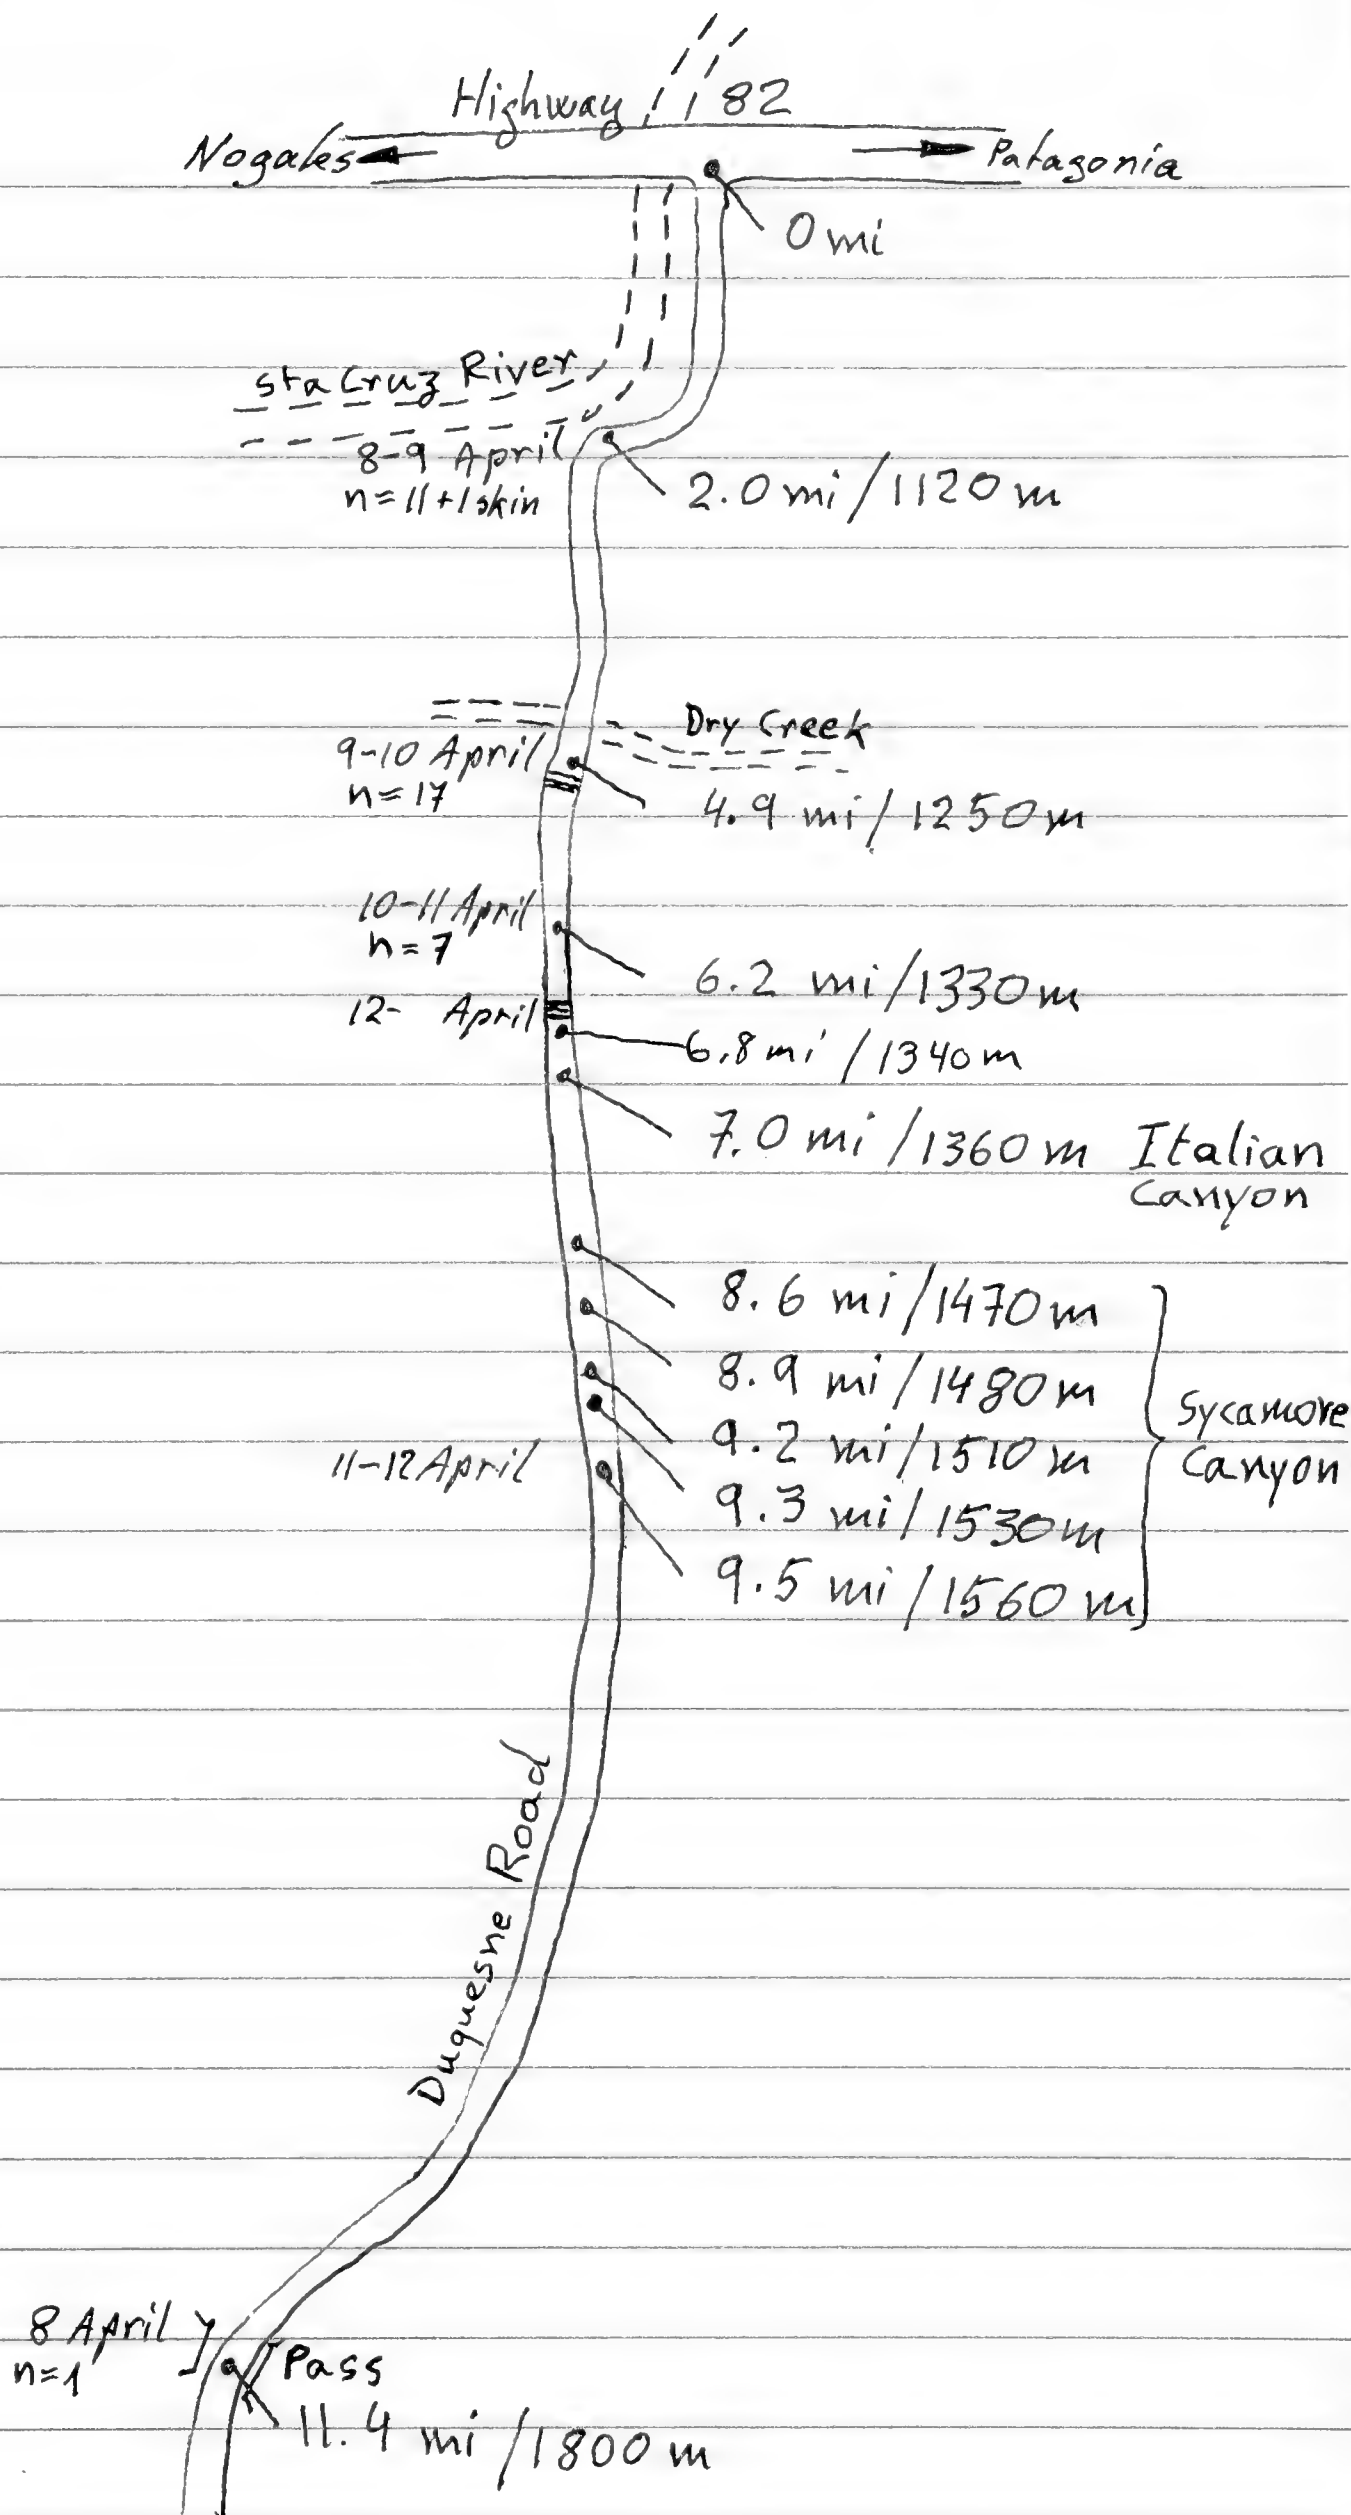 Highway 82
Nogales
Patagonia
0 mi
sta Cruz River
8-9 April
n=11+1skin
2.0 mi/1120 m
Dry Creek
9-10 April
n=17
4.9 mi/1250 m
10-11 April
n=7
6.2 mi/1330 m
12- April
6.8 mi/1340 m
7.0 mi/1360 m Italian
Canyon
8.6 mi/1470 m
8.9 mi/1480 m
Sycamore
Canyon
9.2 mi/1510 m
11-12 April
9.3 mi/1530 m
9.5 mi/1560 m
Duquesne Road
8 April
n=1
Pass
11.4 mi/1800 m